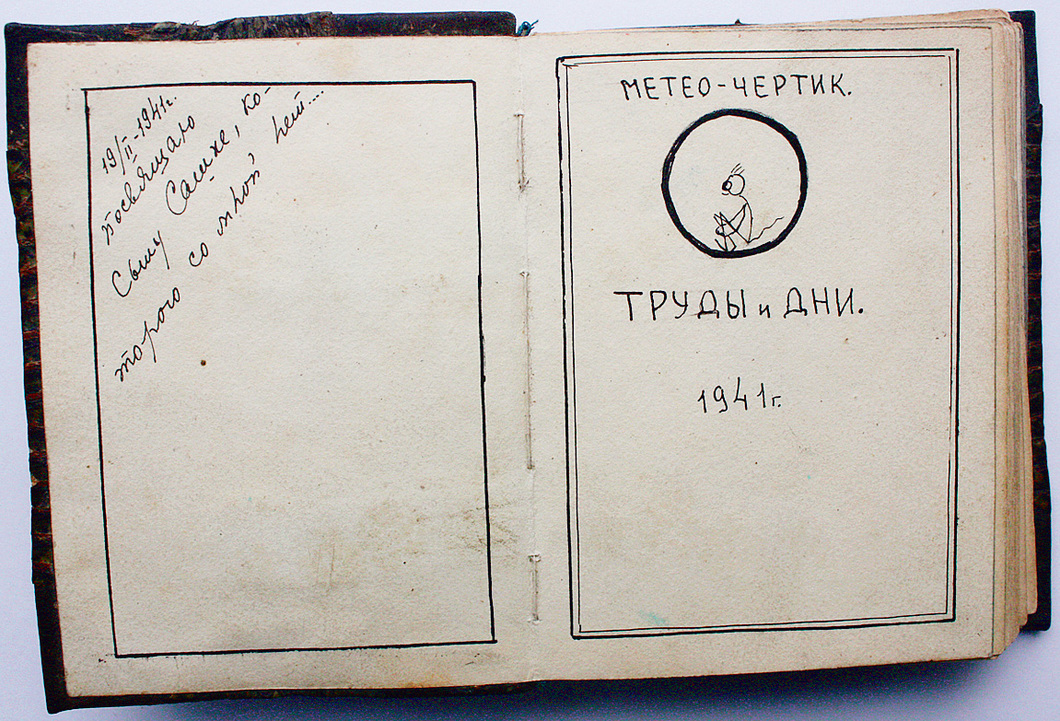 19/II-1941г.
посвящаю
Сыну Сашке, ко-
торого со мной нет....
МЕТЕО-ЧЕРТИК.
ТРУДЫ и ДНИ.
1941г.